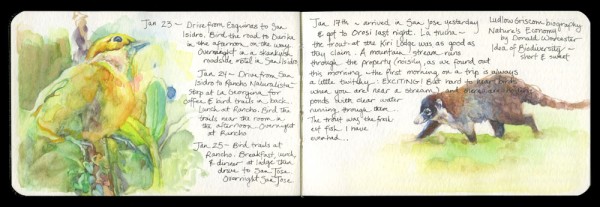 Jan 23 ~ Drive from Esquinas to San
Isidro. Bird the road to Dorika
in the afternoon, on the way.
Overnight in a skankyish
roadside motel in San Isidro.
Jan 24 ~ Drive from San
Isidro to Rancho Naturalista.
Stop at La Georgina for
coffee & bird trails in back.
Lunch at Rancho. Bird the
trails near the room in
the afternoon. Overnight
at Rancho
Jan 25 ~ Bird trails at
Rancho. Breakfast, lunch,
& dinner at lodge then
drive to San Jose.
Overnight San Jose
Jan 19th ~ arrived in San Jose yesterday
& got to Orosi last night. La trucha ~
the trout at the Kiri Lodge was as good as
they claim. A mountain stream runs
through the property (noisily, as we found out
this morning ~ the first morning on a trip is always
a little twitchy. EXCITING! But hard to hear birds
when you are near a stream) and there are
ponds with clear water
running through them...
The trout was the
of fish I have
Ludlow Griscom biography
Nature's Economy
by Donald Worcester
Idea of Biodiversity ~
short & sweet